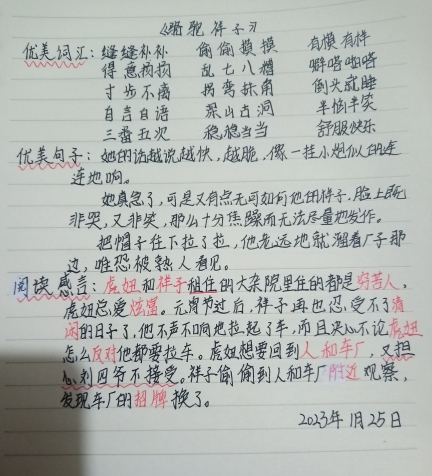 《骆驼祥子》
优美词汇：缝缝补补 偷偷摸摸 有模有样
得意扬扬 乱七八糟 噼啪啪
寸步不离 拐弯抹角 倒头就睡
自言自语 深山古洞 半恼半笑
三番五次 稳稳当当 舒服快乐
优美句子：她的话越说越快，越脆，像一挂小炮似的连
连地响。
她真急了，可是又有点无可如何他的样子，脸上既
非哭，又非笑，那么十分焦躁而无法尽量地发作。
把帽子往下拉了拉，他老远地就溜着厂子那
边，唯恐被熟人看见。
阅读感言：虎妞和祥子租住的大杂院里住的都是穷苦人，
虎妞总爱炫富。元宵节过后，祥子再也忍受不了清
闲的日子了，他不声不响地拉起了车，而且决心不论虎妞
怎么反对他都要拉车。虎妞想要回到人和车厂，又担
心刘四爷不接受。祥子偷偷到人和车厂附近观察，
发现车厂的招牌换了。
2023年1月25日